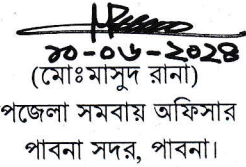 ১০-০৬-২০২৪
(মোঃমাসুদ রানা)
পজেলা সমবায় অফিসার
পাবনা সদর, পাবনা।